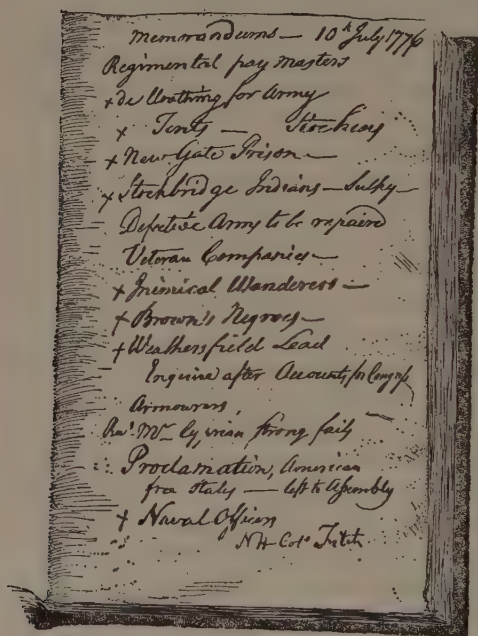 Memorandums — 10th July 1776
Regimental pay masters
+ do Cloathing for Army
+ Tents — Stockings
+ New Gate Prison —
+ Stockbridge Indians — Sulky —
Defective Arms to be repaired
Veteran Companies —
+ Inimical Wanderers —
+ Brown's Negroes —
+ Weathersfield Lead
Enquire after Accounts, for Congress
Armourers,
Mr strong fails
Proclamation, American
free States — left to Assembly
+ Naval Officers
NH Colo